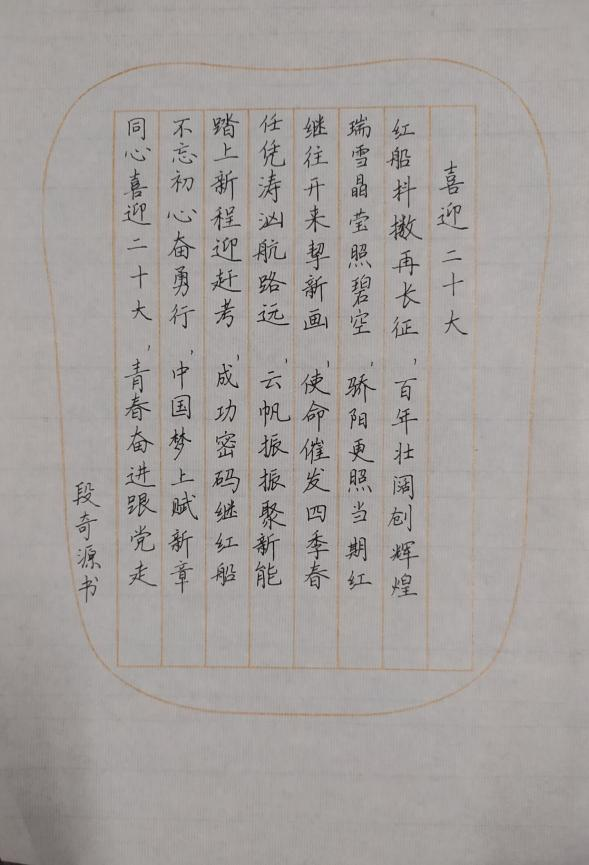 喜迎二十大
红船抖擞再长征，百年壮阔创辉煌
瑞雪晶莹照碧空，骄阳更照当期红
继往开来挈新画，使命催发四季春
任凭涛汹航路远，云帆振振聚新能
踏上新程迎赶考，成功密码继红船
不忘初心奋勇行，中国梦上赋新章
同心喜迎二十大，青春奋进跟党走
段奇源书